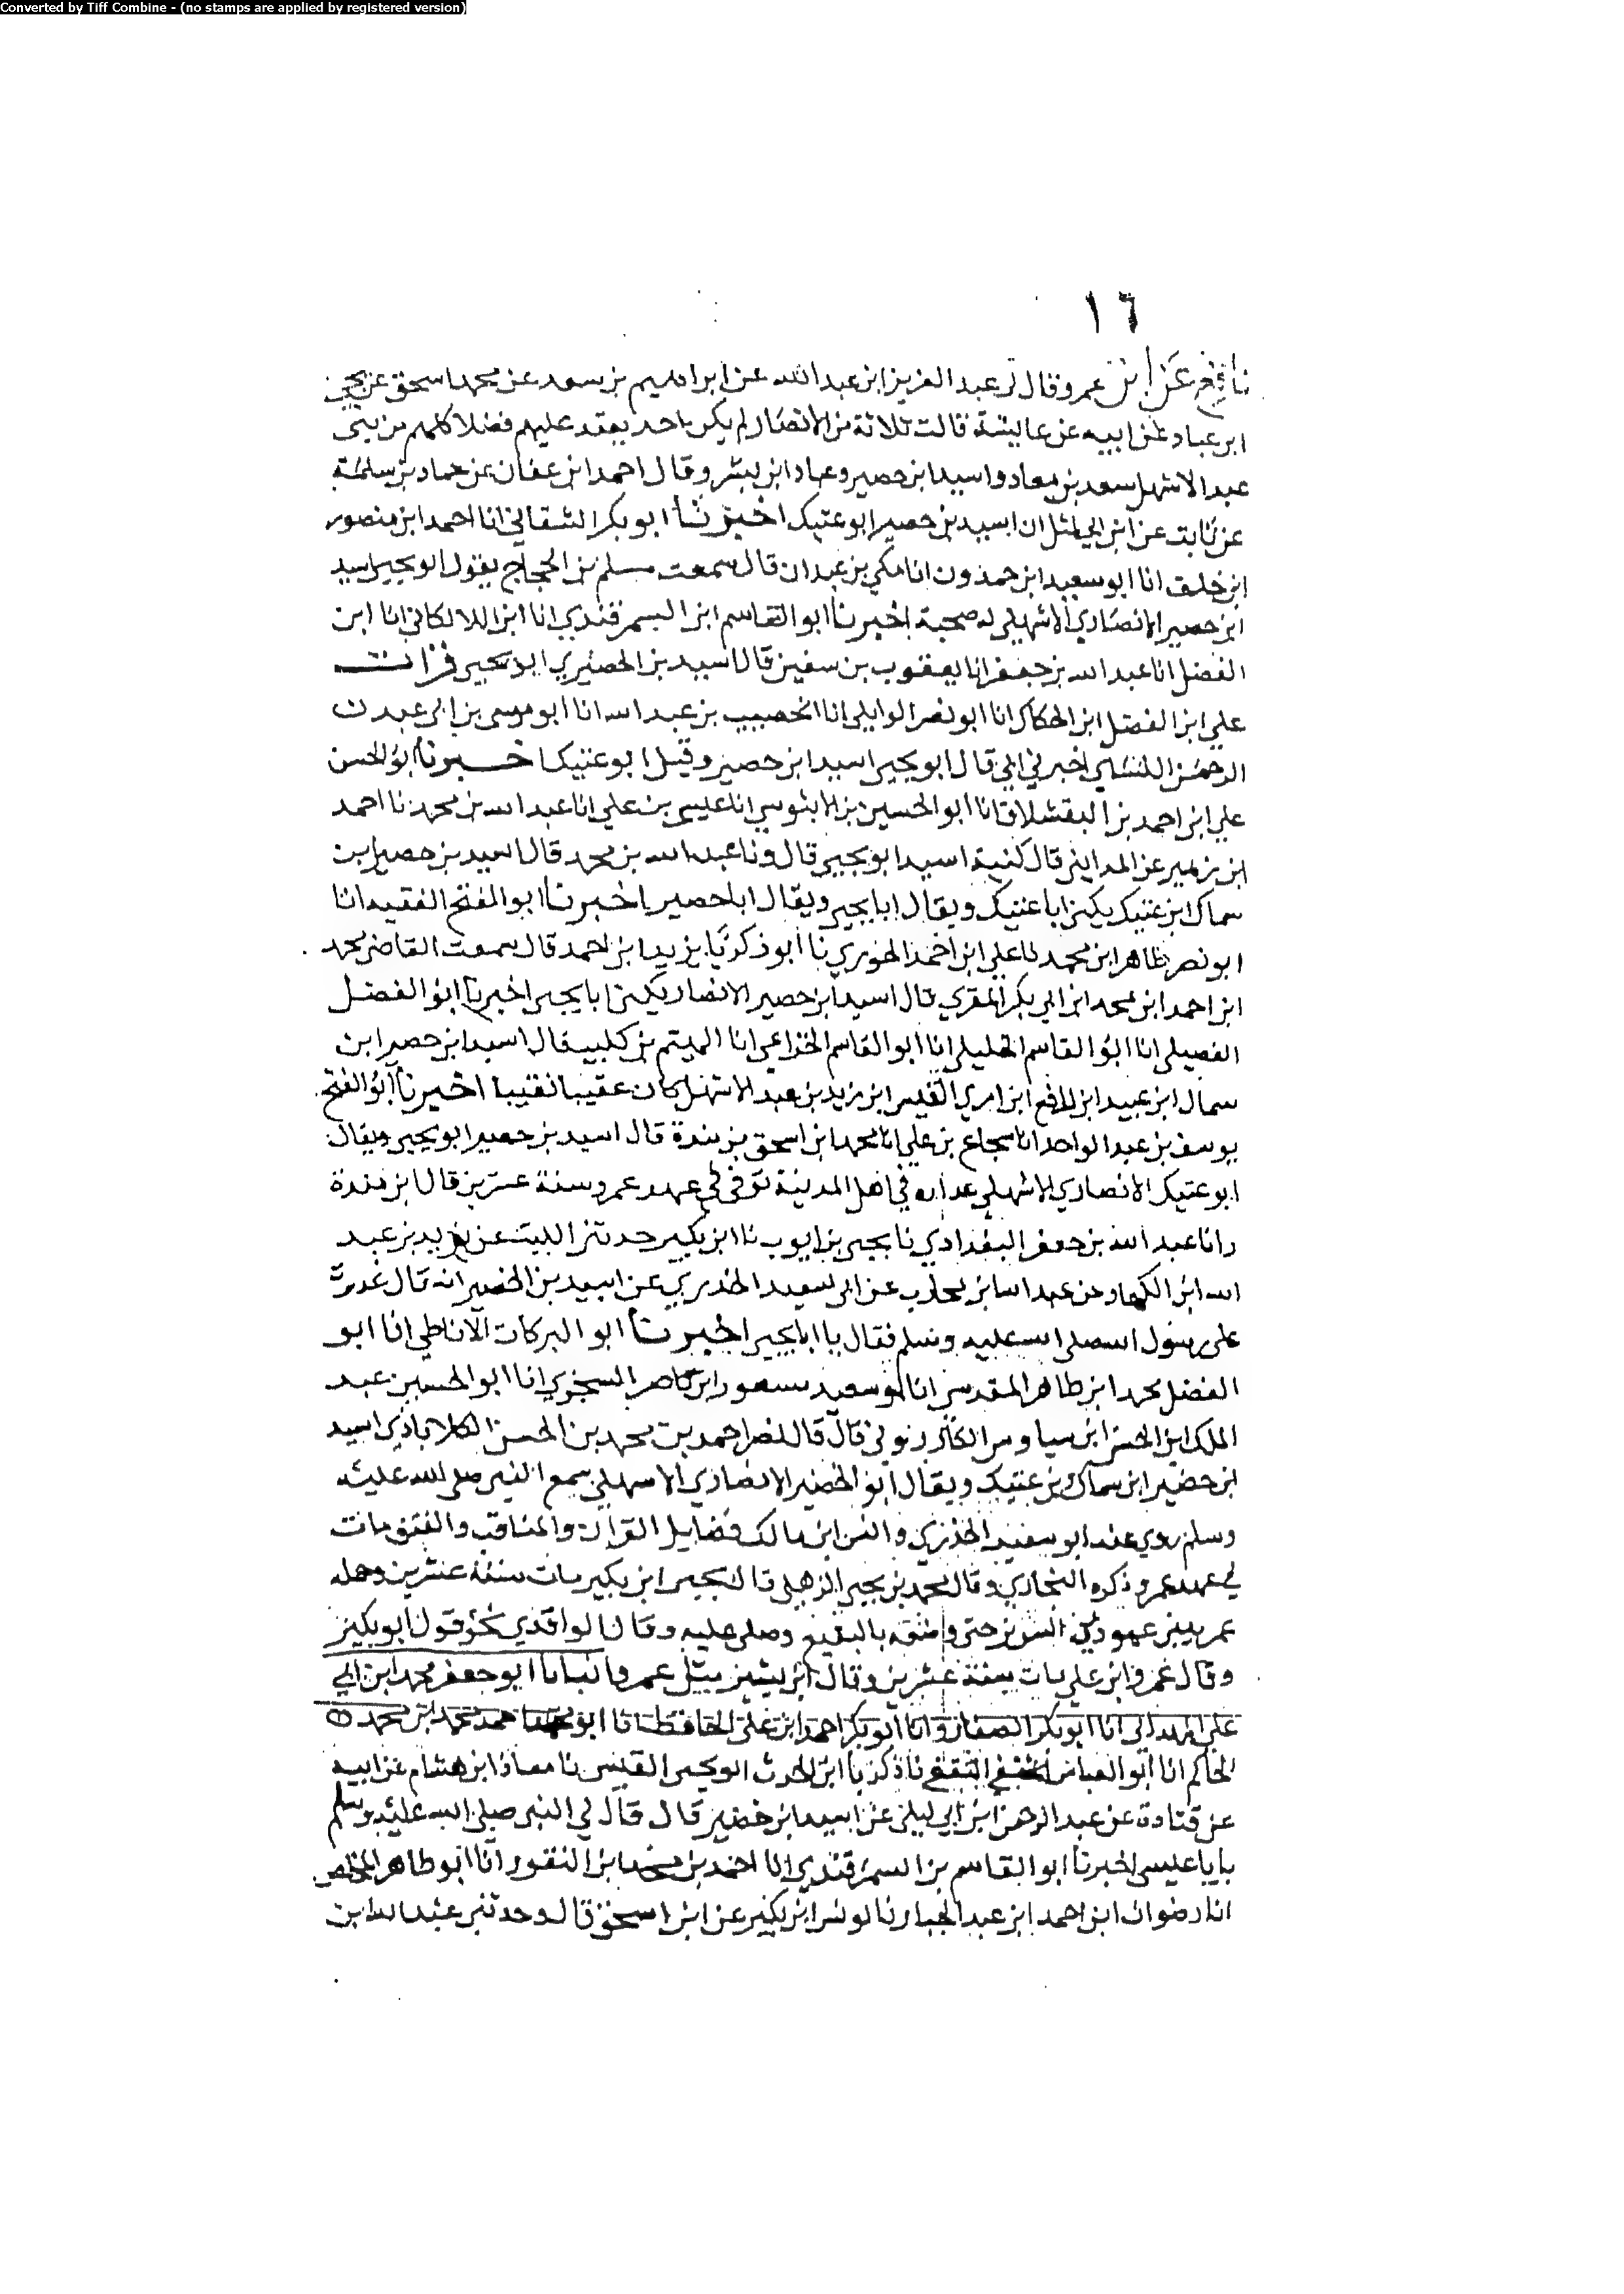 Converted by Tiff Combine - (no stamps are applied by registered version)
١٦
نافع عن ابن عمر وقال لي عبد العزيز ابن عبد الله عن ابراهيم بن سعد عن محمد اسحق عن يحيى
ابن عباد عن ابيه عن عايشة قالت ثلاثة من الانصار لم يكن احد يعتد عليهم فضلا كلهم من بني
عبد الاشهل سعد بن معاد واسيد ابن حصير وعباد ابن بشر وقال احمد ابن عفان عن حماد بن سلمة
عن ثابت عن ابن ابي ليلى ان اسيد بن حصير ابو عتيك اخبرنا ابو بكر الشقاني انا احمد ابن منصور
ابن خلف انا ابو سعيد ابن حمدون انا مكي بن عبدان قال سمعت مسلم بن الحجاج يقول ابو يحيى اسيد
ابن حصير الانصاري الاشهلي له صحبة اخبرنا ابو القاسم ابن السمرقندي انا ابن اللالكاني انا ابن
الفضل انا عبد الله بن جعفر انا يعقوب بن سفين قال اسيد بن الحصير ابو يحيى قرات
علي ابن الفضل ابن الحكاك انا ابو نصر الوايلي انا الخصيب بن عبد الله انا ابو موسى بن ابي عبد
الرحمن النسى اخبرني ابي قال ابو يحيى اسيد ابن حصير وقيل ابو عتيك اخبرنا ابو الحسن
علي ابن احمد بن البقشلاق انا ابو الحسين بن الابنوسي انا عيسى بن علي انا عبد الله بن محمد نا احمد
ابن زهير عن المدايني قال كنية اسيد ابو يحيى قال ونا عبد الله بن محمد قال اسيد بن حصير ابن
سماك ابن عتيك يكنى ابا عتيك ويقال ابا يحيى ويقال ابا حصير اخبرنا ابو الفتح الفقيه انا
ابو نصر طاهر ابن محمد نا علي ابن احمد الخوري نا ابو زكريا يزيد ابن احمد قال سمعت القاضي محمد
ابن احمد ابن محمد ابن ابي بكر المقري قال اسيد ابن حصير الانصار يكنى ابا يحيى اخبرنا ابو الفضل
الفصيلي انا ابو القاسم الخليلي انا ابو القاسم الخزاعي انا الهيثم بن كليب قال اسيد ابن حصير ابن
سمال ابن عبيد ابن رافع ابن امري القيس ابن زيد بن عبد الاشهل كان عقيبا نقيبا اخبرنا ابو الفتح
يوسف بن عبد الواحد انا شجاع بن علي انا محمد ابن اسحق بن مندة قال اسيد بن حصير ابو يحيى ويقال
ابو عتيك الانصاري الاشهلي عداده في اهل المدينة توفي في عهد عمر وسنة عشرين قال ابن مندة
وانا عبد الله بن جعفر البغدادي نا يحيى بن ايوب نا ابن بكير حدثني الليث عن يزيد بن عبد
الله ابن الهاد عن عبد الله ابن عن ابي سعيد الخدري عن اسيد بن الحضير انه قال
على رسول الله صلى الله عليه وسلم فقال يا ابا يحيى اخبرنا ابو البركات الاناطي انا ابو
الفضل محمد ابن طاهر المقدسي انا ابو سعيد مسعود ابن ناصر السجزي انا ابو الحسين عبد
الملك ابن الحسن ابن سياوس الكازروني قال قال لنا نصر احمد بن محمد بن الحسن الكلاباذي اسيد
ابن حضير ابن سماك بن عتيك ويقال ابو الحضير الانصاري الاسهلي سمع النبي صلى الله عليه
وسلم روي عنه ابو سعيد الخدري وانس ابن مالك فضايل القران والمناقب والفتن مات
في عهد عمر وذكره البخاري وقال محمد بن يحيى الذهلي قال يحيى ابن بكير مات سنة عشرين وحمله
عمر بين عمودي السرير حتى وضعه بالبقيع وصلى عليه وقال الواقدي نحو قول ابو بكير
وقال عمرو ابن علي مات سنة عشرين وقال ابن عمر وانبانا ابو جعفر محمد ابن ابي
علي انا ابو بكر الصفار وانا ابو بكر احمد ابن علي الحافظ انا ابو محمد
الحاكم انا ابو العباس الثقفي نا زكريا ابن الحرث ابو يحيى القيسي نا معاذ ابن هشام عن ابيه
عن قتادة عن عبد الرحمن ابن ابي ليلى عن اسيد ابن حضير قال قال لي النبي صلى الله عليه وسلم
يا با عيسى اخبرنا ابو القاسم بن السمرقندي انا احمد بن محمد ابن النقور انا ابو طاهر المخلص
انا رضوان ابن احمد ابن عبد الجبار نا يونس ابن بكير عن ابن اسحق قال وحدثني عبد الله ابن